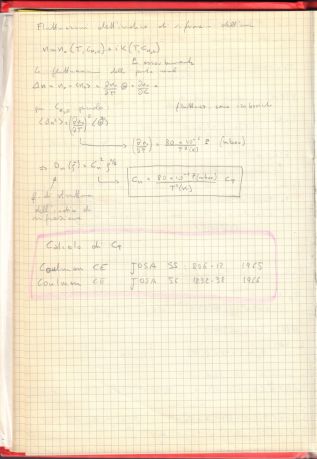 Fluttuazioni dell'indice di rifrazione dell'aria
n = n₀(T, C_H₂O) + i K(T, C_H₂O)
assorbimento
Le fluttuazioni della parte reale
Δn = n₀ - <n₀> = ∂n₀/∂T Θ + ∂n₀/∂C c
per C_H₂O piccolo fluttuaz. sono
<Δn²> = (∂n₀/∂T)² <Θ²>
(∂n₀/∂T) = 80 × 10⁻⁶ P (mbar) / T²(K)
⇒ D_n(ρ) = C_n² ρ^2/3
C_n = 80 × 10⁻⁶ P(mbar) / T²(K) C_T
f. di struttura
dell'indice di
rifrazione
Calcolo di C_T
Coulman CE JOSA 55 806-12 1965
Coulman CE JOSA 56 1232-38 1966